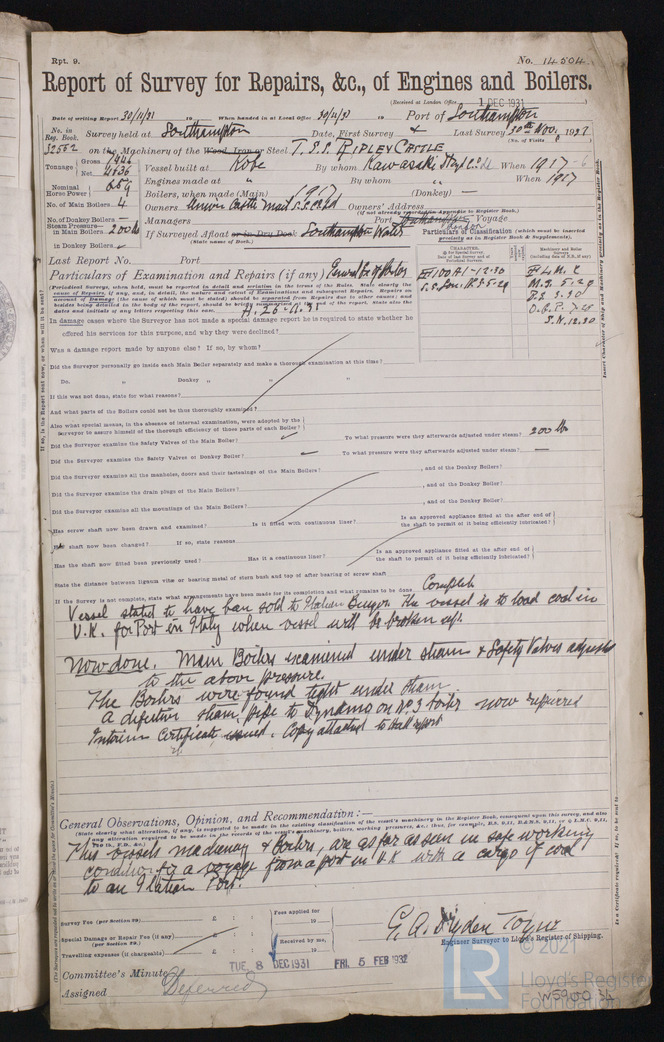 Rpt. 9.
No. 14504
Report of Survey for Repairs, &c., of Engines and Boilers.
(Received at London Office 1 DEC 1931 )
Date of writing Report 30/11/31 19 When handed in at Local Office 30/11/31 19 Port of Southampton
No. in Reg. Book. Survey held at Southampton Date, First Survey Last Survey 30th Nov. 1931
(No. of Visits )
on the Machinery of the Wood, Iron or Steel T.S.S. RIPLEY CASTLE
Tonnage Gross
Net 4636
Vessel built at Kobe By whom Kawasaki When 1917-6
Nominal Horse Power 659
Engines made at By whom When 1917
No. of Main Boilers 4
Boilers, when made (Main) 1917 (Donkey) —
Owners Union Castle Mail S.S. Co Ltd Owners' Address
(if not already recorded in Appendix to Register Book.)
No. of Donkey Boilers —
Managers Port Southampton London Voyage
Steam Pressure in Main Boilers 200 lb
in Donkey Boilers
If Surveyed Afloat or in Dry Dock Southampton Water
(State name of Dock.)
Particulars of Classification (which must be inserted precisely as in Register Book & Supplements).
Last Report No. Port
CHARACTER.
Machinery and Boiler Surveys
Particulars of Examination and Repairs (if any)
100A1-12.30
M.S. 5.29
B.S. 3.30
S.N. 12.30
(Periodical Surveys, when held, must be reported in detail and seriatim in the terms of the Rules. State clearly the
cause of Repairs, if any, and, in detail, the nature and extent of Examinations and subsequent Repairs. Repairs on
account of Damage (the cause of which must be stated) should be separated from Repairs due to other causes; and
besides being detailed in the body of the report, should be briefly summarised at the end of the report. State also the
dates and initials of any letters respecting this case.
In damage cases where the Surveyor has not made a special damage report he is required to state whether he
offered his services for this purpose, and why they were declined?
Was a damage report made by anyone else? If so, by whom?
Did the Surveyor personally go inside each Main Boiler separately and make a thorough examination at this time?
Do. Donkey „ „ „
If this was not done, state for what reasons?
And what parts of the Boilers could not be thus thoroughly examined?
Also what special means, in the absence of internal examination, were adopted by the
Surveyor to assure himself of the thorough efficiency of those parts of each Boiler?
Did the Surveyor examine the Safety Valves of the Main Boiler? ✓ To what pressure were they afterwards adjusted under steam? 200 lbs
Did the Surveyor examine the Safety Valves or Donkey Boiler? — To what pressure were they afterwards adjusted under steam? —
Did the Surveyor examine all the manholes, doors and their fastenings of the Main Boilers? , and of the Donkey Boilers?
Did the Surveyor examine the drain plugs of the Main Boilers? , and of the Donkey Boiler?
Did the Surveyor examine all the mountings of the Main Boilers? , and of the Donkey Boiler?
Has screw shaft now been drawn and examined? Is it fitted with continuous liner? Is an approved appliance fitted at the after end of
the shaft to permit of it being efficiently lubricated?
Has shaft now been changed? If so, state reasons
Has the shaft now fitted been previously used? Has it a continuous liner? Is an approved appliance fitted at the after end of
the shaft to permit of it being efficiently lubricated?
State the distance between lignum vitæ or bearing metal of stern bush and top of after bearing of screw shaft
If the Survey is not complete, state what arrangements have been made for its completion and what remains to be done Complete
Vessel stated to have been sold to Italian Buyers. The vessel is to load coal in
U.K. for Port in Italy when vessel will be broken up.
Now done. Main Boilers examined under steam & Safety Valves adjusted
to the above pressure.
The Boilers were found tight under steam
A defective steam pipe to Dynamo on No 3 boiler now repaired
Interim Certificate issued. Copy attached to Hull report
General Observations, Opinion, and Recommendation:—
(State clearly what alteration, if any, is suggested to be made in the existing classification of the vessel's machinery in the Register Book, consequent upon this survey, and also
This vessels machinery & boilers, are as far as seen in safe working
condition for a voyage from a port in U.K with a cargo of coal
to an Italian Port.
Survey Fee (per Section 29) £ : :
Special Damage or Repair Fee (if any) (per Section 29.) £ : :
Travelling expenses (if chargeable) £ : :
Fees applied for 19
Received by me, 19
Engineer Surveyor to Lloyd's Register of Shipping.
Committee's Minute TUE 8 DEC 1931 FRI. 5 FEB 1932
Assigned Deferred
© 2021
LR
Lloyd's Register
Foundation